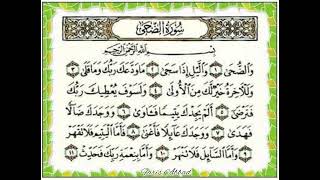 سورة الضحى
بسم الله الرحمن الرحيم
وَالضُّحَىٰ ١ وَاللَّيْلِ إِذَا سَجَىٰ ٢ مَا وَدَّعَكَ رَبُّكَ وَمَا قَلَىٰ ٣
وَلَلْآخِرَةُ خَيْرٌ لَكَ مِنَ الْأُولَىٰ ٤ وَلَسَوْفَ يُعْطِيكَ رَبُّكَ
فَتَرْضَىٰ ٥ أَلَمْ يَجِدْكَ يَتِيمًا فَآوَىٰ ٦ وَوَجَدَكَ ضَالًّا
فَهَدَىٰ ٧ وَوَجَدَكَ عَائِلًا فَأَغْنَىٰ ٨ فَأَمَّا الْيَتِيمَ فَلَا تَقْهَرْ
٩ وَأَمَّا السَّائِلَ فَلَا تَنْهَرْ ١٠ وَأَمَّا بِنِعْمَةِ رَبِّكَ فَحَدِّثْ ١١